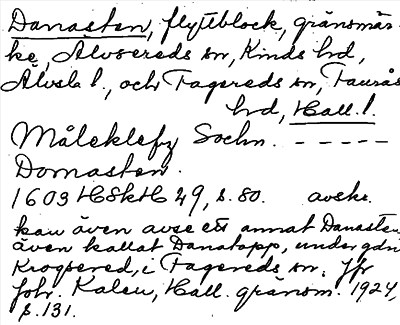 Danasten, flyttblock, gränsmär-
ke, Älvsereds sn, Kinds hd,
Älvsb l., och Fagereds sn, Faurås
hd, Hall. l.
Måleklefz Sochn. - - - - -
Domasten.
1603 HSkH 49, s. 80. avskr.
kan även avse ett annat Danasten
även kallat Danatopp, under gdn
Krogsered, i Fagereds sn. Jfr
Joh. Kalén, Hall. gränsm. 1924,
s. 131.